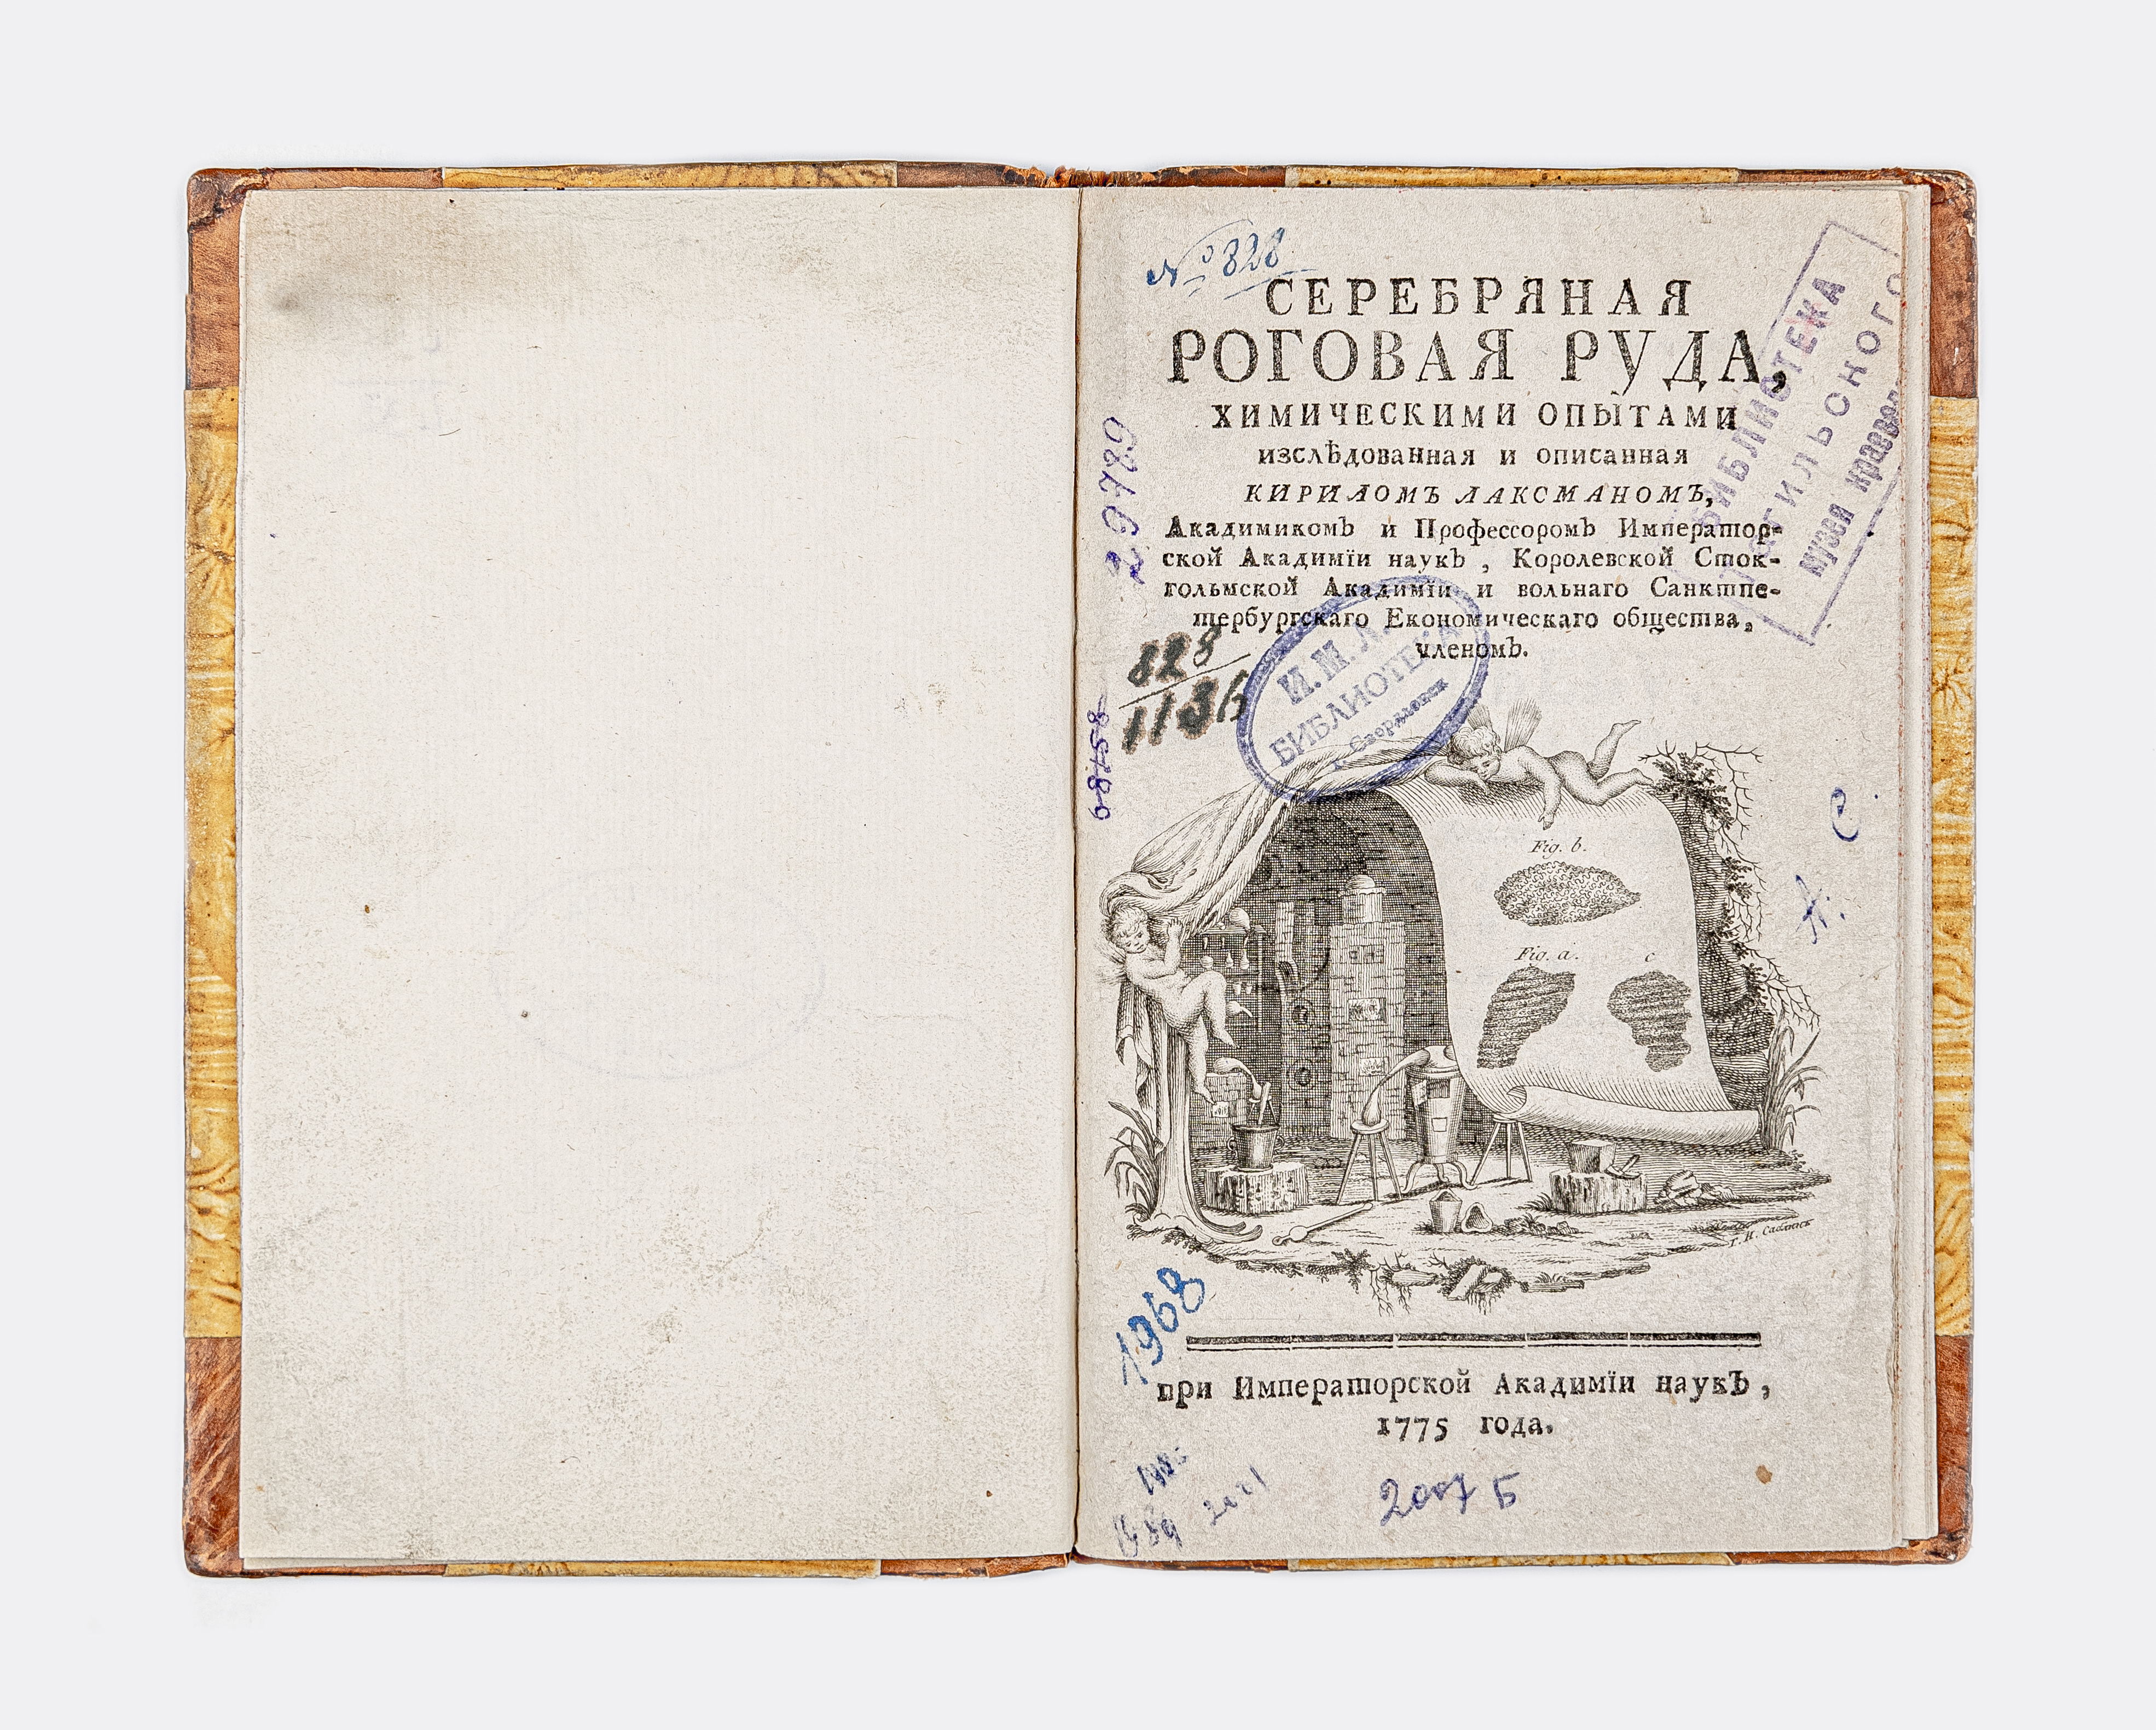 № 828
СЕРЕБРЯНАЯ
РОГОВАЯ РУДА,
ХИМИЧЕСКИМИ ОПЫТАМИ
изслѣдованная и описанная
КИРИЛОМЪ ЛАКСМАНОМЪ,
Академикомъ и Профессоромъ Император-
ской Академїи наукъ, Королевской Сток-
гольмской Академїи и вольнаго Санктпе-
тербургскаго Економическаго общества,
членомъ.
БИБЛИОТЕКА
ГИЛЬСКОГО
музея краевед
29789
828
И. М.
БИБЛИОТЕКА
Свердловск
85789
Fig. b.
Fig. a.
c
С.
А.
1968
при Императорской Академїи наукЪ,
1775 года.
2001
2007 Б